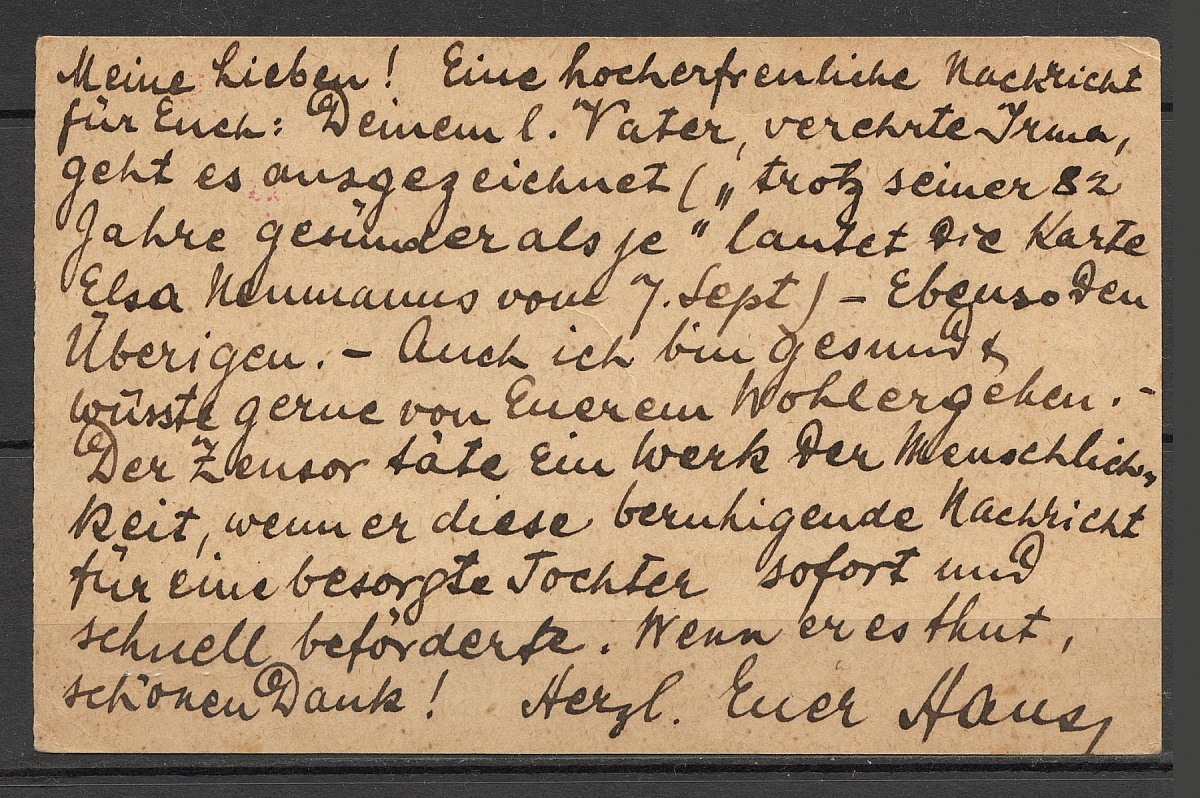 Meine Lieben! Eine hocherfreuliche Nachricht
für Euch: Deinem l. Vater, verehrte Irma,
geht es ausgezeichnet („trotz seiner 82
Jahre gesünder als je" lautet die Karte
Elsa Neumanns vom 7. Sept) – Ebenso den
Überigen. – Auch ich bin gesund &
wüsste gerne von Euerem Wohlergehen. –
Der Zensor täte ein Werk der Menschlich-
keit, wenn er diese beruhigende Nachricht
für eine besorgte Tochter sofort und
schnell beförderte. Wenn er es thut,
schönen Dank! Herzl. Euer Hans